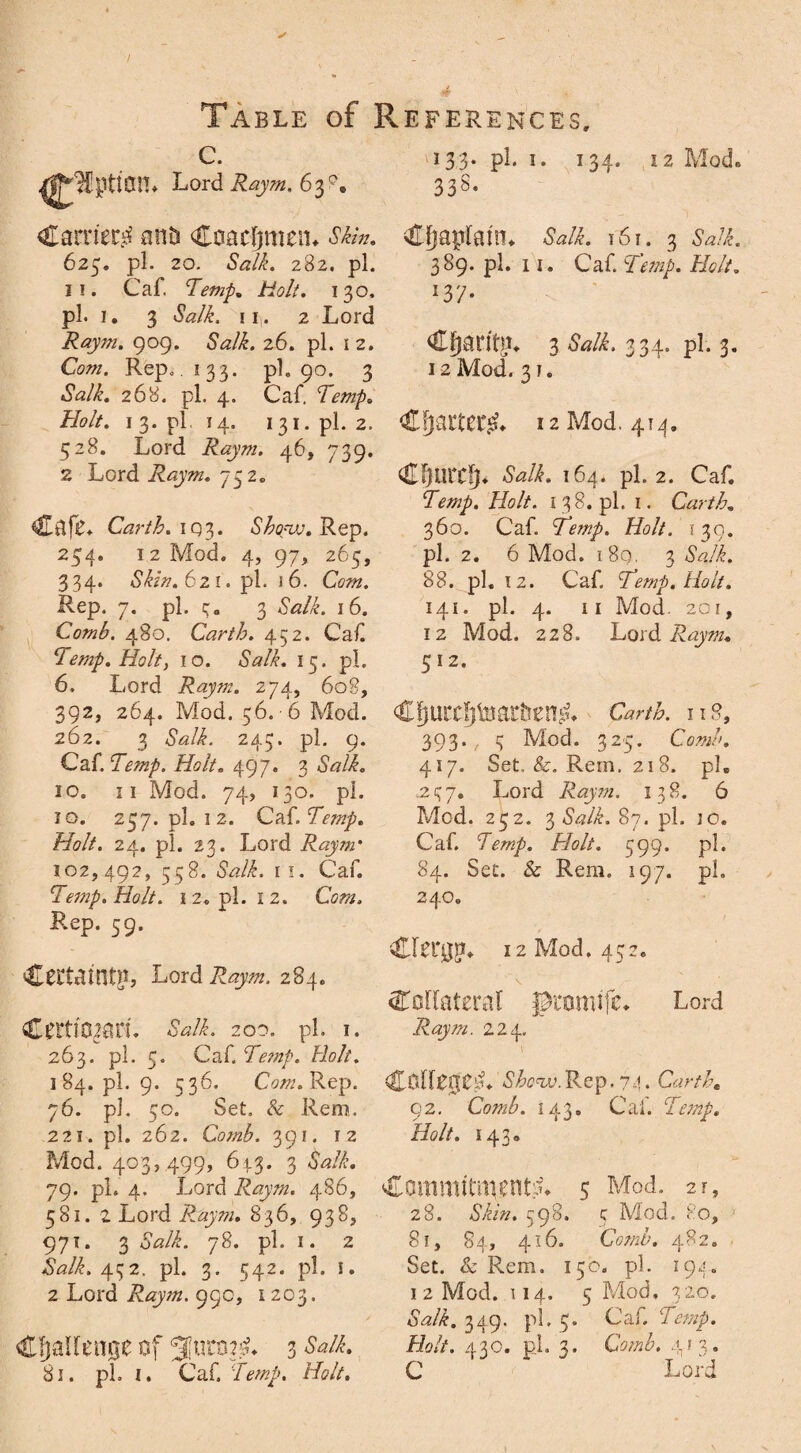 TABLE of REFERENCES.
C.
CAption. Lord Raym. 638.
Carriers and Coachmen. Skin.
625. pl. 20. Salk. 282. pl.
11. Caſ. Temp. Holt. 130.
pl. 1. 3 Salk. 11. 2 Lord
Raym. 909. Salk. 26. pl. 12.
Com. Rep. 133. pl. 90. 3
Salk. 268. pl. 4. Caſ. Temp.
Holt. 13. pl. 14. 131. pl. 2.
528. Lord Raym. 46, 739.
2 Lord Raym. 752.
Caſe. Carth. 193. Show. Rep.
254. 12 Mod. 4, 97, 265,
334. Skin. 621. pl. 16. Com.
Rep. 7. pl. 5. 3 Salk. 16.
Comb. 480. Carth. 452. Caſ.
Temp. Holt, 10. Salk. 15. pl.
6. Lord Raym. 274, 608,
392, 264. Mod. 56. 6 Mod.
262. 3 Salk. 245. pl. 9.
Caſ. Temp. Holt. 497. 3 Salk.
10. 11 Mod. 74, 130. pl.
10. 257. pl. 12. Caſ. Temp.
Holt. 24. pl. 23. Lord Raym.
102, 492, 558. Salk. 11. Caſ.
Temp. Holt. 12. pl. 12. Com.
Rep. 59.
Certainty, Lord Raym. 284.
Certiorari. Salk. 200. pl. 1.
263. pl. 5. Caſ. Temp. Holt.
184. pl. 9. 536. Com. Rep.
76. pl. 50. Set. & Rem.
221. pl. 262. Comb. 391. 12
Mod. 403, 499, 643. 3 Salk.
79. pl. 4. Lord Raym. 486,
581. 2 Lord Raym. 836, 938,
971. 3 Salk. 78. pl. 1. 2
Salk. 452. pl. 3. 542. pl. 1.
2 Lord Raym. 990, 1203.
Challenge of Jurors. 3 Salk.
81. pl. 1. Caſ. Temp. Holt.
133. pl. 1. 134. 12 Mod.
338.
Chaplain. Salk. 161. 3 Salk.
389. pl. 11. Caſ. Temp. Holt.
137.
Charity. 3 Salk. 334. pl. 3.
12 Mod. 31.
Charters. 12 Mod. 414.
Church. Salk. 164. pl. 2. Caſ.
Temp. Holt. 138. pl. 1. Carth.
360. Caſ. Temp. Holt. 139.
pl. 2. 6 Mod. 189. 3 Salk.
88. pl. 12. Caſ. Temp. Holt.
141. pl. 4. 11 Mod. 201,
12 Mod. 228. Lord Raym.
512.
Churchwardens. Carth. 118,
393. 5 Mod. 325. Comb.
417. Set. &. Rem. 218. pl.
257. Lord Raym. 138. 6
Mod. 252. 3 Salk. 87. pl. 10.
Caſ. Temp. Holt. 599. pl.
84. Set. & Rem. 197. pl.
240.
Clergy. 12 Mod. 452.
Collateral Promiſe. Lord
Raym. 224.
Colleges. Show. Rep. 74. Carth.
92. Comb. 143. Caſ. Temp.
Holt. 143.
Commitments. 5 Mod. 21,
28. Skin. 598. 5 Mod. 80,
81, 84, 416. Comb. 482.
Set. & Rem. 150. pl. 194.
12 Mod. 114. 5 Mod. 320.
Salk. 349. pl. 5. Caſ. Temp.
Holt. 430. pl. 3. Comb. 413.
C Lord